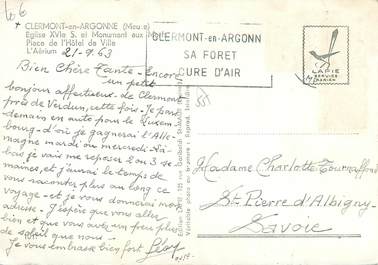 CLERMONT-en-ARGONNE (Meuse)
Eglise XVIe S. et Monument aux
Place de l'Hôtel de Ville
L'Aérium
21-9-63
Bien Chère Tante - Encore
un petit
bonjour affectueux - de Clermont
près de Verdun, cette fois - Je pars
demain en auto pour le Luxem-
bourg - d'où je gagnerai l'Alle-
magne mardi ou mercredi - Là-
bas je vais me reposer 2 ou 3 se-
maines, et j'aurai le temps de
vous raconter plus au long ce
voyage - et je vous donnerai mon
adresse - J'espère que vous allez
bien et que vous avez un peu plus
de soleil que nous -
Je vous embrasse bien fort
CLERMONT-en-ARGONN
SA FORET
CURE D'AIR
LAPIE
SERVICE
AERIEN
Madame Charlotte Tournaffond
St. Pierre d'Albigny
Savoie